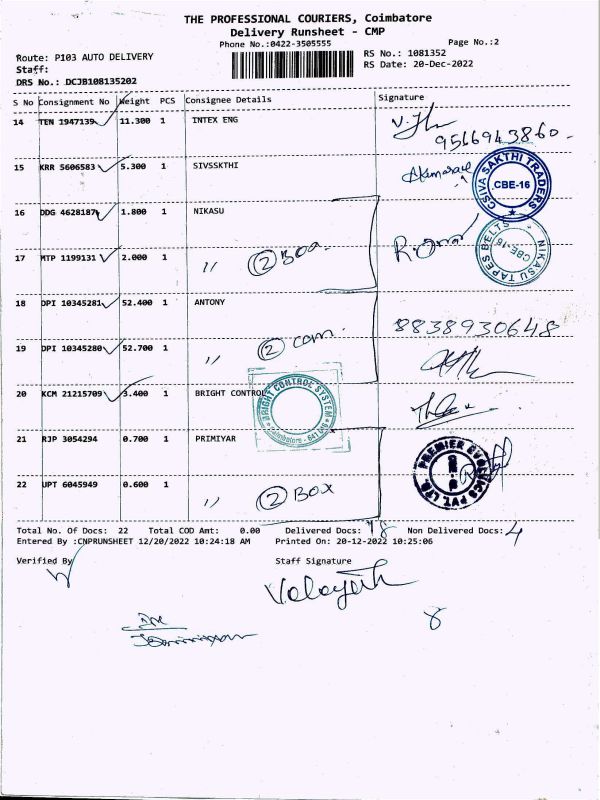 THE PROFESSIONAL COURIERS, Coimbatore
Delivery Runsheet - CMP
Phone No.:0422-3505555
Page No.:2
Route: P103 AUTO DELIVERY
RS No.: 1081352
Staff:
RS Date: 20-Dec-2022
DRS No.: DCJB108135202
S No Consignment No Weight PCS Consignee Details Signature
14 TEN 1947139 11.300 1 INTEX ENG
9566943860
15 KRR 5606583 5.300 1 SIVSSKTHI
SIVA SAKTHI TRADERS
CBE-16
16 DDG 4628187 1.800 1 NIKASU
NIKASU TAPES BELTS
CBE-16
17 MTP 1199131 2.000 1 〃 2 Box
18 DPI 10345281 52.400 1 ANTONY
8838930648
19 DPI 10345280 52.700 1 〃 2 com
20 KCM 21215709 3.400 1 BRIGHT CONTROL
BRIGHT CONTROL SYSTEM
Coimbatore - 641
21 RJP 3054294 0.700 1 PRIMIYAR
PREMIER EVOLTICS PVT. LTD.
22 UPT 6045949 0.600 1 〃 2 Box
Total No. Of Docs: 22 Total COD Amt: 0.00 Delivered Docs: 18 Non Delivered Docs: 4
Entered By :CNPRUNSHEET 12/20/2022 10:24:18 AM Printed On: 20-12-2022 10:25:06
Verified By
Staff Signature